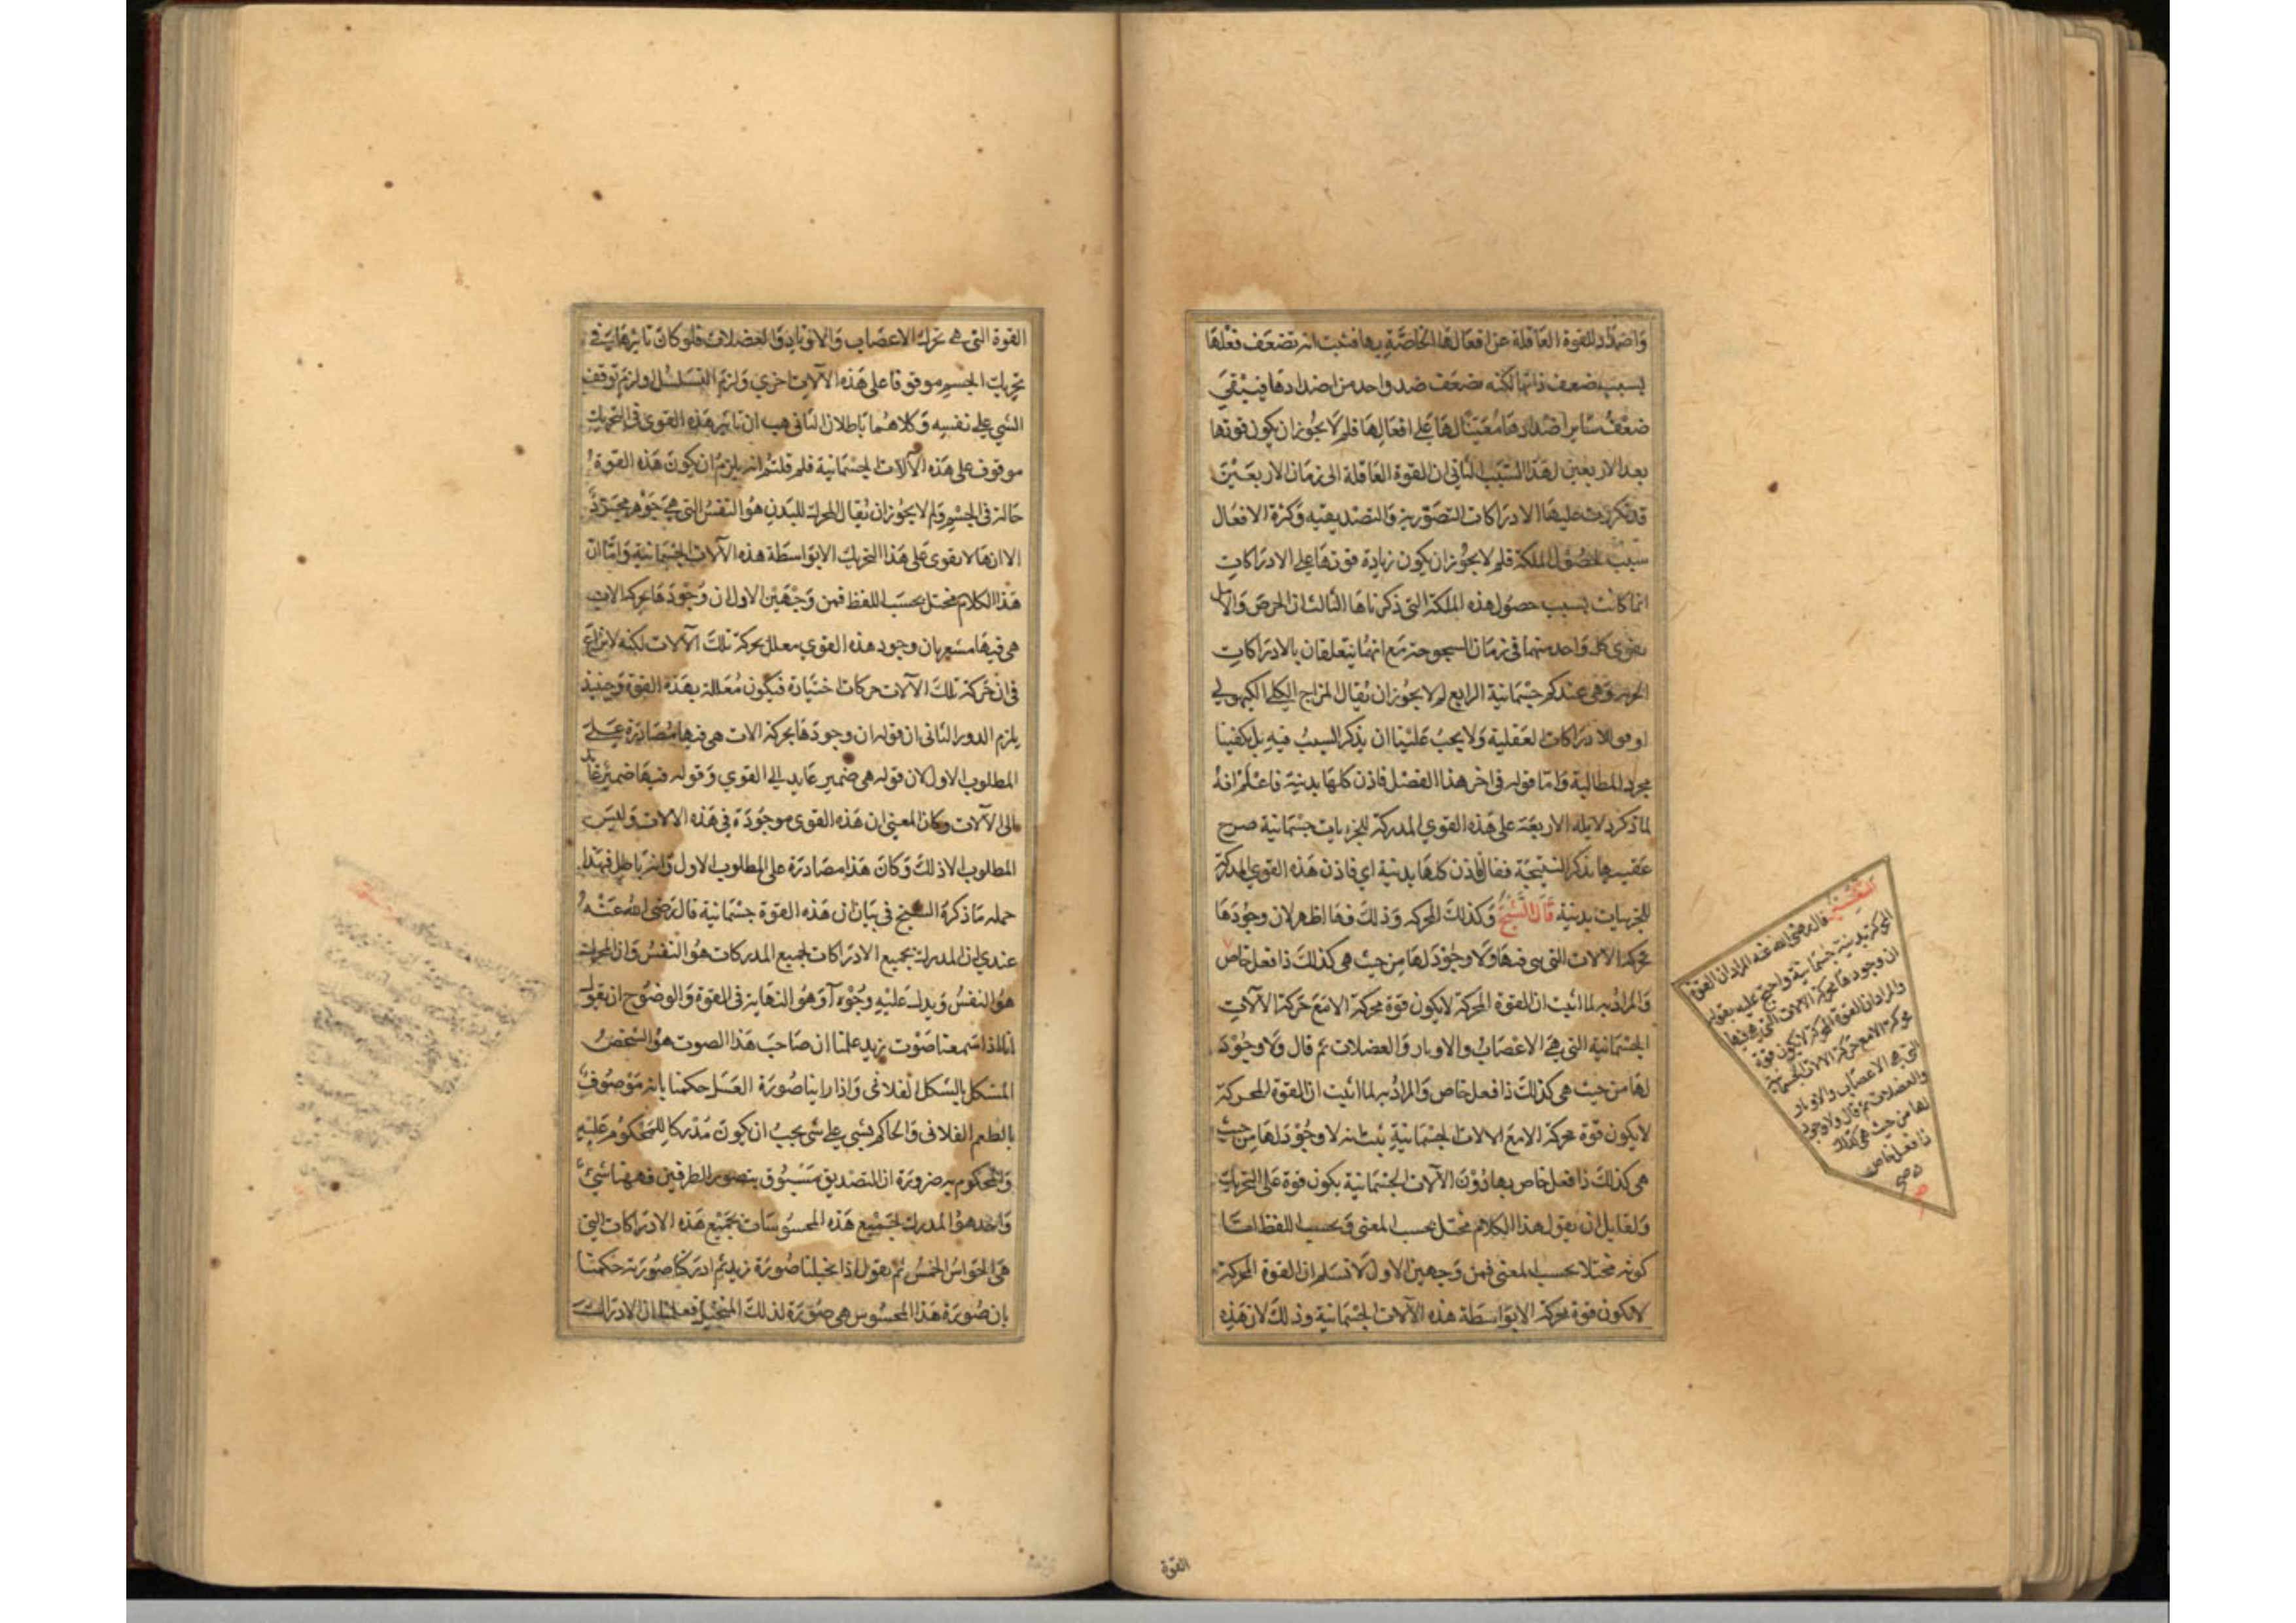 وَاضداد للقوة العَاقلة عن افعَالهَا الخاصَّةِ بها فثبت انه تضعَف فعْلهَا
بسبب ضعف ذاتها لكنه تضعَف ضد واحد من اضدادهَا فيبْقيَ
ضعْفُ سَاير اضْدادهَا مُعَينًا لهَا عَلي افعَالِهَا فلم لَا يجُوز ان يكون قوتها
بعد الاربعين لهَذا السَّبَب الثاني ان القوة العَاقلة الى زمَان الاربعَيْن
قد تكررت عليهَا الادرَاكات التصَوّرية وَالتصْديقيه وَكثرة الافعَال
سَبَب لحصُول الملكة فلم لا يجُوز ان يكون زيادة قوتهَا على الادرَاكاتِ
انما كانت بسبب حصُول هذه الملكة التى ذكرناهَا الثالث ان الحرصَ وَالامل
يقوى كل وَاحد منهمَا في زمَان الشيخوخة مَع انهُمَا يتعلقان بالادرَاكاتِ
الجزئية وَهى عندكم جسْمَانية الرابع لم لا يجُوز ان يُقال المزاج الكهولي
اوفق للادرَاكات العَقلية وَلا يجبُ عَليْنا ان يذكر السببُ فيهِ بل يكفينا
مجرد المطالبة وَامّا قوله في اخر هذا الفصْل فاذن كلهَا بدنية فاعْلم انهُ
لما ذكر دلايله الاربعَة على هَذه القوي المدركة للجزئيات جسْمَانية صرح
عَقيبهَا بذكر النتيجَة فقال فاذن كلهَا بدنية اي فاذن هَذه القوي المدركة
للجزئيات بدنية قَالَ الشَّيْخُ وَكذلكَ المحركه وَذلكَ فيهَا اظهر لان وجُودَهَا
بحركة الالات التى هى فيهَا وَلَا وجُوْدَ لهَا مِن حيْث هى كذلكَ ذا فعل خاص
وَالمرَادُ به لما اثبت ان للقوة المحركة لا يكون قوة محركة الا مَع حَركة الآلاتِ
الجسْمَانية التى هىَ الاعْصَابُ والاوتار وَالعضلات ثم قال وَلا وجُوْدَ
لهَا من حيث هى كذلكَ ذا فعل خاص وَالمرادُ به لما اثبت ان القوة المحركة
لا يكون قوة محركة الا مَع الالات الجسْمَانيةِ ثبت انه لا وجُوْدَ لهَا مِن حيْث
هى كذلكَ ذا فعل خاص بهَا دُوْنَ الآلات الجسْمَانية يكون قوة عَلى التحريكِ
وَلقايل ان يقول هذا الكلام مختل بحسب المعنى وَبحسب اللفظ امّا
كونه مختلا بحسب المعنى فمن وَجهين الاول لَا نسَلم ان القوة المحركة
لا تكون قوة محركة الا بوَاسطَة هذه الآلات الجسْمَانية وذلكَ لان هَذِه
القوة
التفسير قال رضى الله عنه المراد ان القوة
المحركة بدنية جسْمَانية واحتج عليه بقوله
ان وجودهَا بحركة الالات التى هى فيها
والمراد ان للقوة المحركة لا يكون قوة
محركة الا مع حركة الالات الجسمانية
التى هى الاعصاب والاوتار
والعضلات ثم قال ولا وجود
لها من حيث هى كذلك
ذا فعل خاص
القوة التى هى تحرك الاعصَاب وَالاوتار وَالعضلات فلو كانَ تاثيرهَا في
تحريك الجسْم موقوفا على هَذه الآلات اخرى وَلزم التسَلسُل او لزم توقف
الشي على نفسِه وَكلاهُمَا باطلان الثاني هب ان تاثير هَذه القوى في التحريك
موقوف على هَذه الآلات الجسْمَانية فلم قلتم انه يلزم ان يكون هَذه القوة
حَالة في الجسْم وَلم لا يجُوز ان يُقال المحرك للبَدنِ هُوَ النفسُ التى هىَ جَوْهَر مجَرّد
الا انهَا لا يقوى عَلى هَذا التحريك الا بوَاسطَة هذه الآلات الجسْمَانية وَامَّا ان
هَذا الكلام مختل بحسَب اللفظ فمن وَجْهَيْن الاول ان وُجُوْدَهَا بحركة الات
هى فيهَا مشعر بان وجود هذه القوي معلل بحركة تلكَ الآلات لكنه لا نزاعَ
في ان حَركة تلكَ الآلات حركات اختيارة فيكون مُعَللة بهَذه القوة وَحينئذ
يلزم الدور الثاني ان قوله ان وجودَهَا بحركة الات هى فيهَا مُصَادَرة عَلى
المطلوب الاول لان قوله هى ضمير عَايد الي القوي وَقوله فيهَا ضمير عَايد
الى الآلات وكان المعنى ان هَذه القوى موجُوْدَة في هَذه الالات وَليسَ
المطلوب الا ذلكَ وَكانَ هَذا مصَادرَة على المطلوب الاول وَانه باطِل فهَذا
جمله مَا ذكرهُ الشيْخ في بيَان ان هَذه القوة جسْمَانية قال رَضىَ اللهُ عَنْهُ
عندي ان المدرك بجميع الادرَاكات لجميع المدركات هُوَ النفسُ وَان المحرك
هُوَ النفسُ وَيدل عَليْهِ وُجُوْه آ وَهُوَ النهَاية في القوة وَالوضوْح ان يقول
انا اذا سَمعنا صَوْت زيد علمنا ان صَاحبَ هَذا الصوت هوَ الشخصُ
المشكل بالشكل الفلانى وَاذا راينا صُورَة العَسَل حكمنا بانه مَوْصُوفٌ
بالطعم الفلانى وَالحاكم بشى على شى يجبُ ان يكون مُدْركا للمَحْكوم عَليْهِ
وَالمحكوم به ضرورَة ان التصْديق مَسْبُوق بتصور الطرفين فههنا شيْئٌ
وَاحد هُوَ المدرك لجميْع هَذه المحسُوسَات بجَميْع هَذه الادرَاكات التي
هى الحوَاسُ الخمسُ ثم يقول اذا تخيلنا صُورَة زيد ثم ادركنا صُورَته حَكمْنا
بان صُورَة هَذا المحسُوس هى صُوْرَة لذلكَ المتخيل فعلمنا ان الادرَاك